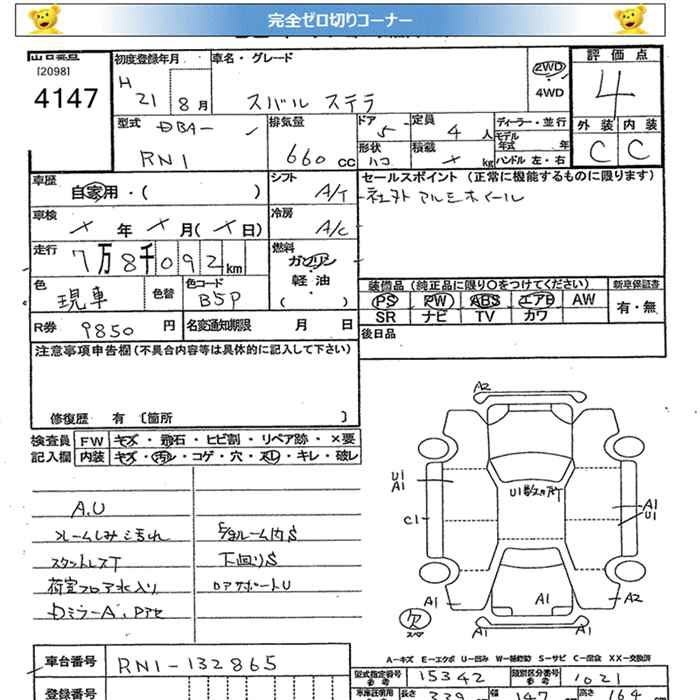 完全ゼロ切りコーナー
[2098]
4147
初度登録年月
H
21 8 月
車名・グレード
スバル ステラ
2WD
・
4WD
評価点
4
外装 内装
C C
型式 DBA-
RN1
排気量
660 cc
ドア 5
形状 ハコ
定員 4 人
積載 × kg
ディーラー・並行
モデル年式 年
ハンドル 左・右
車歴
自家用・( )
シフト A/T
セールスポイント(正常に機能するものに限ります)
社外アルミホイール
車検 × 年 × 月(× 日)
冷房 A/C
走行 7万8千092km
燃料
ガソリン
軽油
( )
色 現車 色替 色コード B5P
装備品(純正品に限り○をつけてください) 新車保証書
PS PW ABS エアB AW
SR ナビ TV カワ
有・無
R券 9850 円 名変通知期限 月 日
後日品
注意事項申告欄(不具合内容等は具体的に記入して下さい)
修復歴 有 〔箇所 〕
検査員 FW キズ・飛石・ヒビ割・リペア跡・×要
記入欄 内装 キズ・汚れ・コゲ・穴・スレ・キレ・破レ
A.U
スタットレスT
下回りS
荷室フロア水入り
ドアサポートU
A2
U1
A1
C1
A1
U1
A1
A1
A2
A1
欠
スペア
A-キズ E-エクボ U-凹み W-補修跡 S-サビ C-腐食 XX-交換済
車台番号 RN1-132865
型式指定番号 15342
類別区分番号 1021
登録番号
長さ 339 幅 147 高さ 164